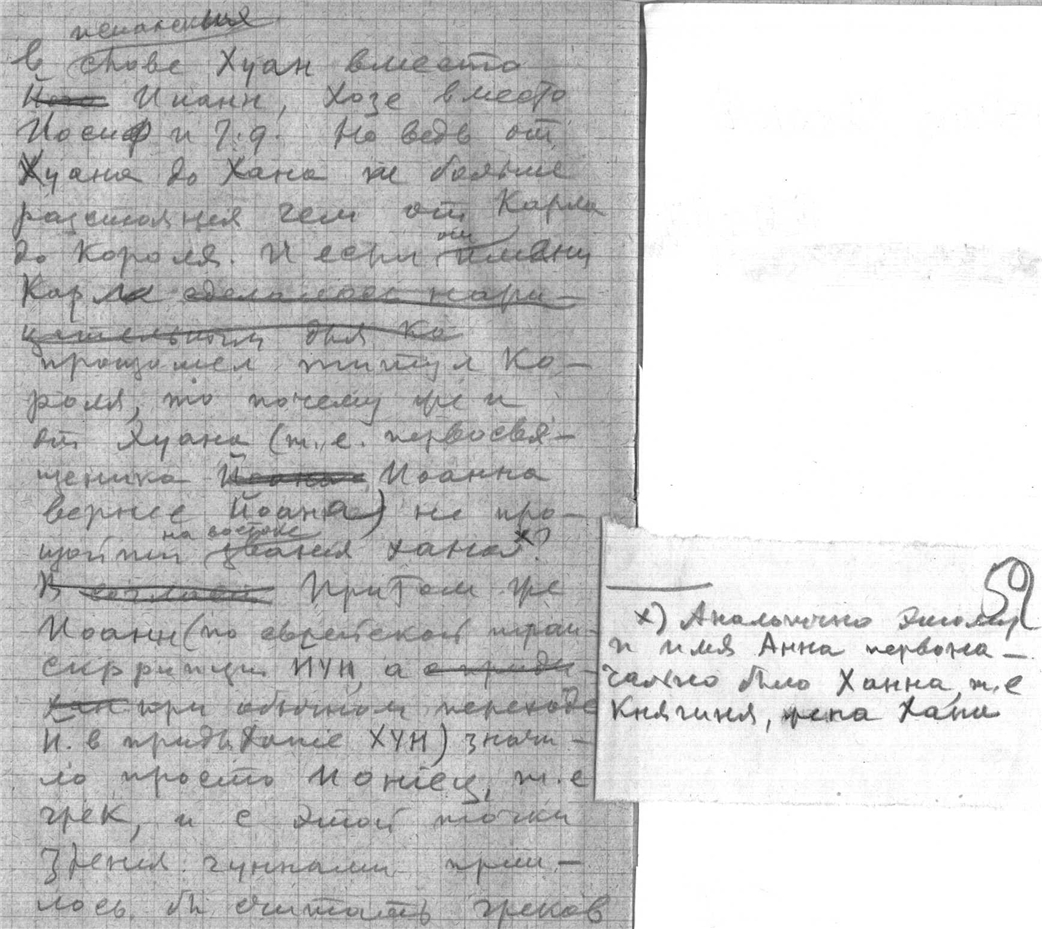 испанския
в слове Хуан вместо
Иоанн, Хозе вместо
Иосиф и т.д. Но ведь от
Хуана до Хана не больше
разстояния чем от Карла
до Короля. И если от имени
Карла сделалось нари-
цательным для Ко
произошел титул Ко-
роля, то почему же и
от Хуана (т.е. первосвя-
щеника Иоанна
вернее Йоана) не про-
изойти на востоке звания хана х)?
В Притом же
Иоанн (по еврейской тран-
скрипции ИУН, а
Хан при обычном переходе
И. в придыхание ХУН) значи-
ло просто Иониец, т.е
грек, и с этой точки
зрения гуннами приш-
лось бы считать греков
59
х) Аналогично этому
и имя Анна первона-
чально было Ханна, т.е
Княгиня, жена Хана